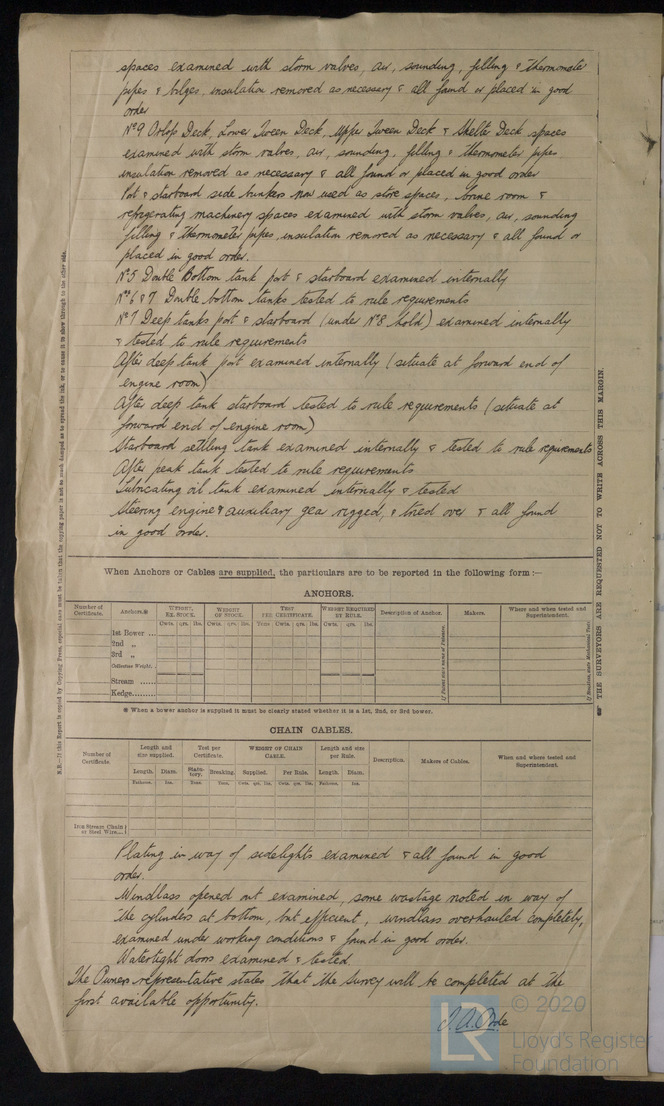 spaces examined with storm valves, air, sounding, filling & thermometer
pipes & bilges, insulation removed as necessary & all found or placed in good
order
Nº9 Orlop Deck, Lower Tween Deck, Upper Tween Deck & Shelter Deck spaces
examined with storm valves, air, sounding, filling & thermometer pipes
insulation removed as necessary & all found or placed in good order
Port & starboard side bunkers now used as store spaces, brine room &
refrigerating machinery spaces examined with storm valves, air, sounding
filling & thermometer pipes, insulation removed as necessary & all found or
placed in good order.
Nº5 Double Bottom tank port & starboard examined internally
Nºs 6 & 7 Double bottom tanks tested to rule requirements
Nº7 Deep tanks port & starboard (under Nº8 hold) examined internally
& tested to rule requirements
After deep tank port examined internally (situate at forward end of
engine room)
After deep tank starboard tested to rule requirements (situate at
forward end of engine room)
Starboard settling tank examined internally & tested to rule requirements
After peak tank tested to rule requirements
Lubricating oil tank examined internally & tested
Steering engine & auxiliary gea rigged, & tried over & all found
in good order.
When Anchors or Cables are supplied, the particulars are to be reported in the following form :—
ANCHORS.
Number of Certificate. Anchors.* WEIGHT, EX. STOCK. WEIGHT OF STOCK. TEST PER CERTIFICATE. WEIGHT REQUIRED BY RULE. Description of Anchor. Makers. Where and when tested and Superintendent.
Cwts. qrs. lbs. Cwts. qrs. lbs. Tons. Cwts. qrs. lbs. Cwts. qrs. lbs.
1st Bower ...
2nd „
3rd „
Collective Weight.
Stream ......
Kedge.........
* When a bower anchor is supplied it must be clearly stated whether it is a 1st, 2nd, or 3rd bower.
CHAIN CABLES.
Number of Certificate. Length and size supplied. Test per Certificate. WEIGHT OF CHAIN CABLE. Length and size per Rule. Description. Makers of Cables. When and where tested and Superintendent.
Length. Diam. Statutory. Breaking. Supplied. Per Rule. Length. Diam.
Fathoms. Ins. Tons. Tons. Cwts. qrs. lbs. Cwts. qrs. lbs. Fathoms. Ins.
Iron Stream Chain
or Steel Wire...
Plating in way of sidelights examined & all found in good
order.
Windlass opened out examined, some wastage noted in way of
the cylinders at bottom, but efficient, windlass overhauled completely,
examined under working conditions & found in good order.
Watertight doors examined & tested
The Owners representative states that the survey will be completed at the
first available opportunity.
N.B.—If this Report is copied by Copying Press, especial care must be taken that the copying paper is not so much damped as to spread the ink, or to cause it to show through to the other side.
THE SURVEYORS ARE REQUESTED NOT TO WRITE ACROSS THIS MARGIN.
LR
© 2020
Lloyd's Register
Foundation